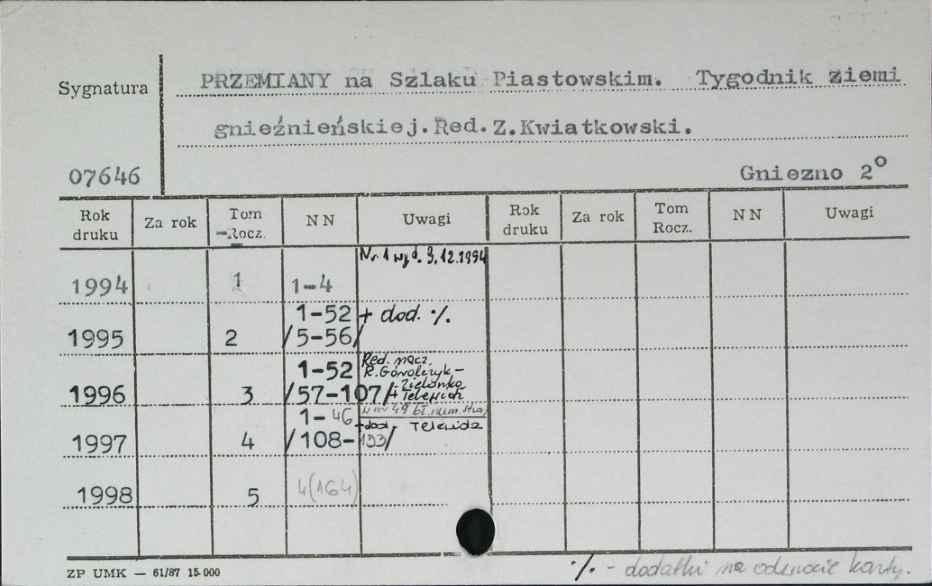 Sygnatura
PRZEMIANY na Szlaku Piastowskim. Tygodnik ziemi
gnieźnieńskiej. Red. Z. Kwiatkowski.
07646
Gniezno 2°
Rok druku Za rok Tom Rocz. NN Uwagi Rok druku Za rok Tom Rocz. NN Uwagi
Nr 1 wyd. 9.12.1994
1994 1 1-4
1-52 + dod. ·/.
1995 2 /5-56/
1-52 Red. nacz.
R. Górolczyk-
Zielonka
1996 3 /57-107/ +
1-46
+ dod.
1997 4 /108-153/
1998 5 4(164)
ZP UMK — 61/87 15 000
·/. - dodatki na odwrocie karty.